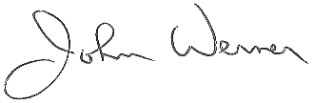 John Werner